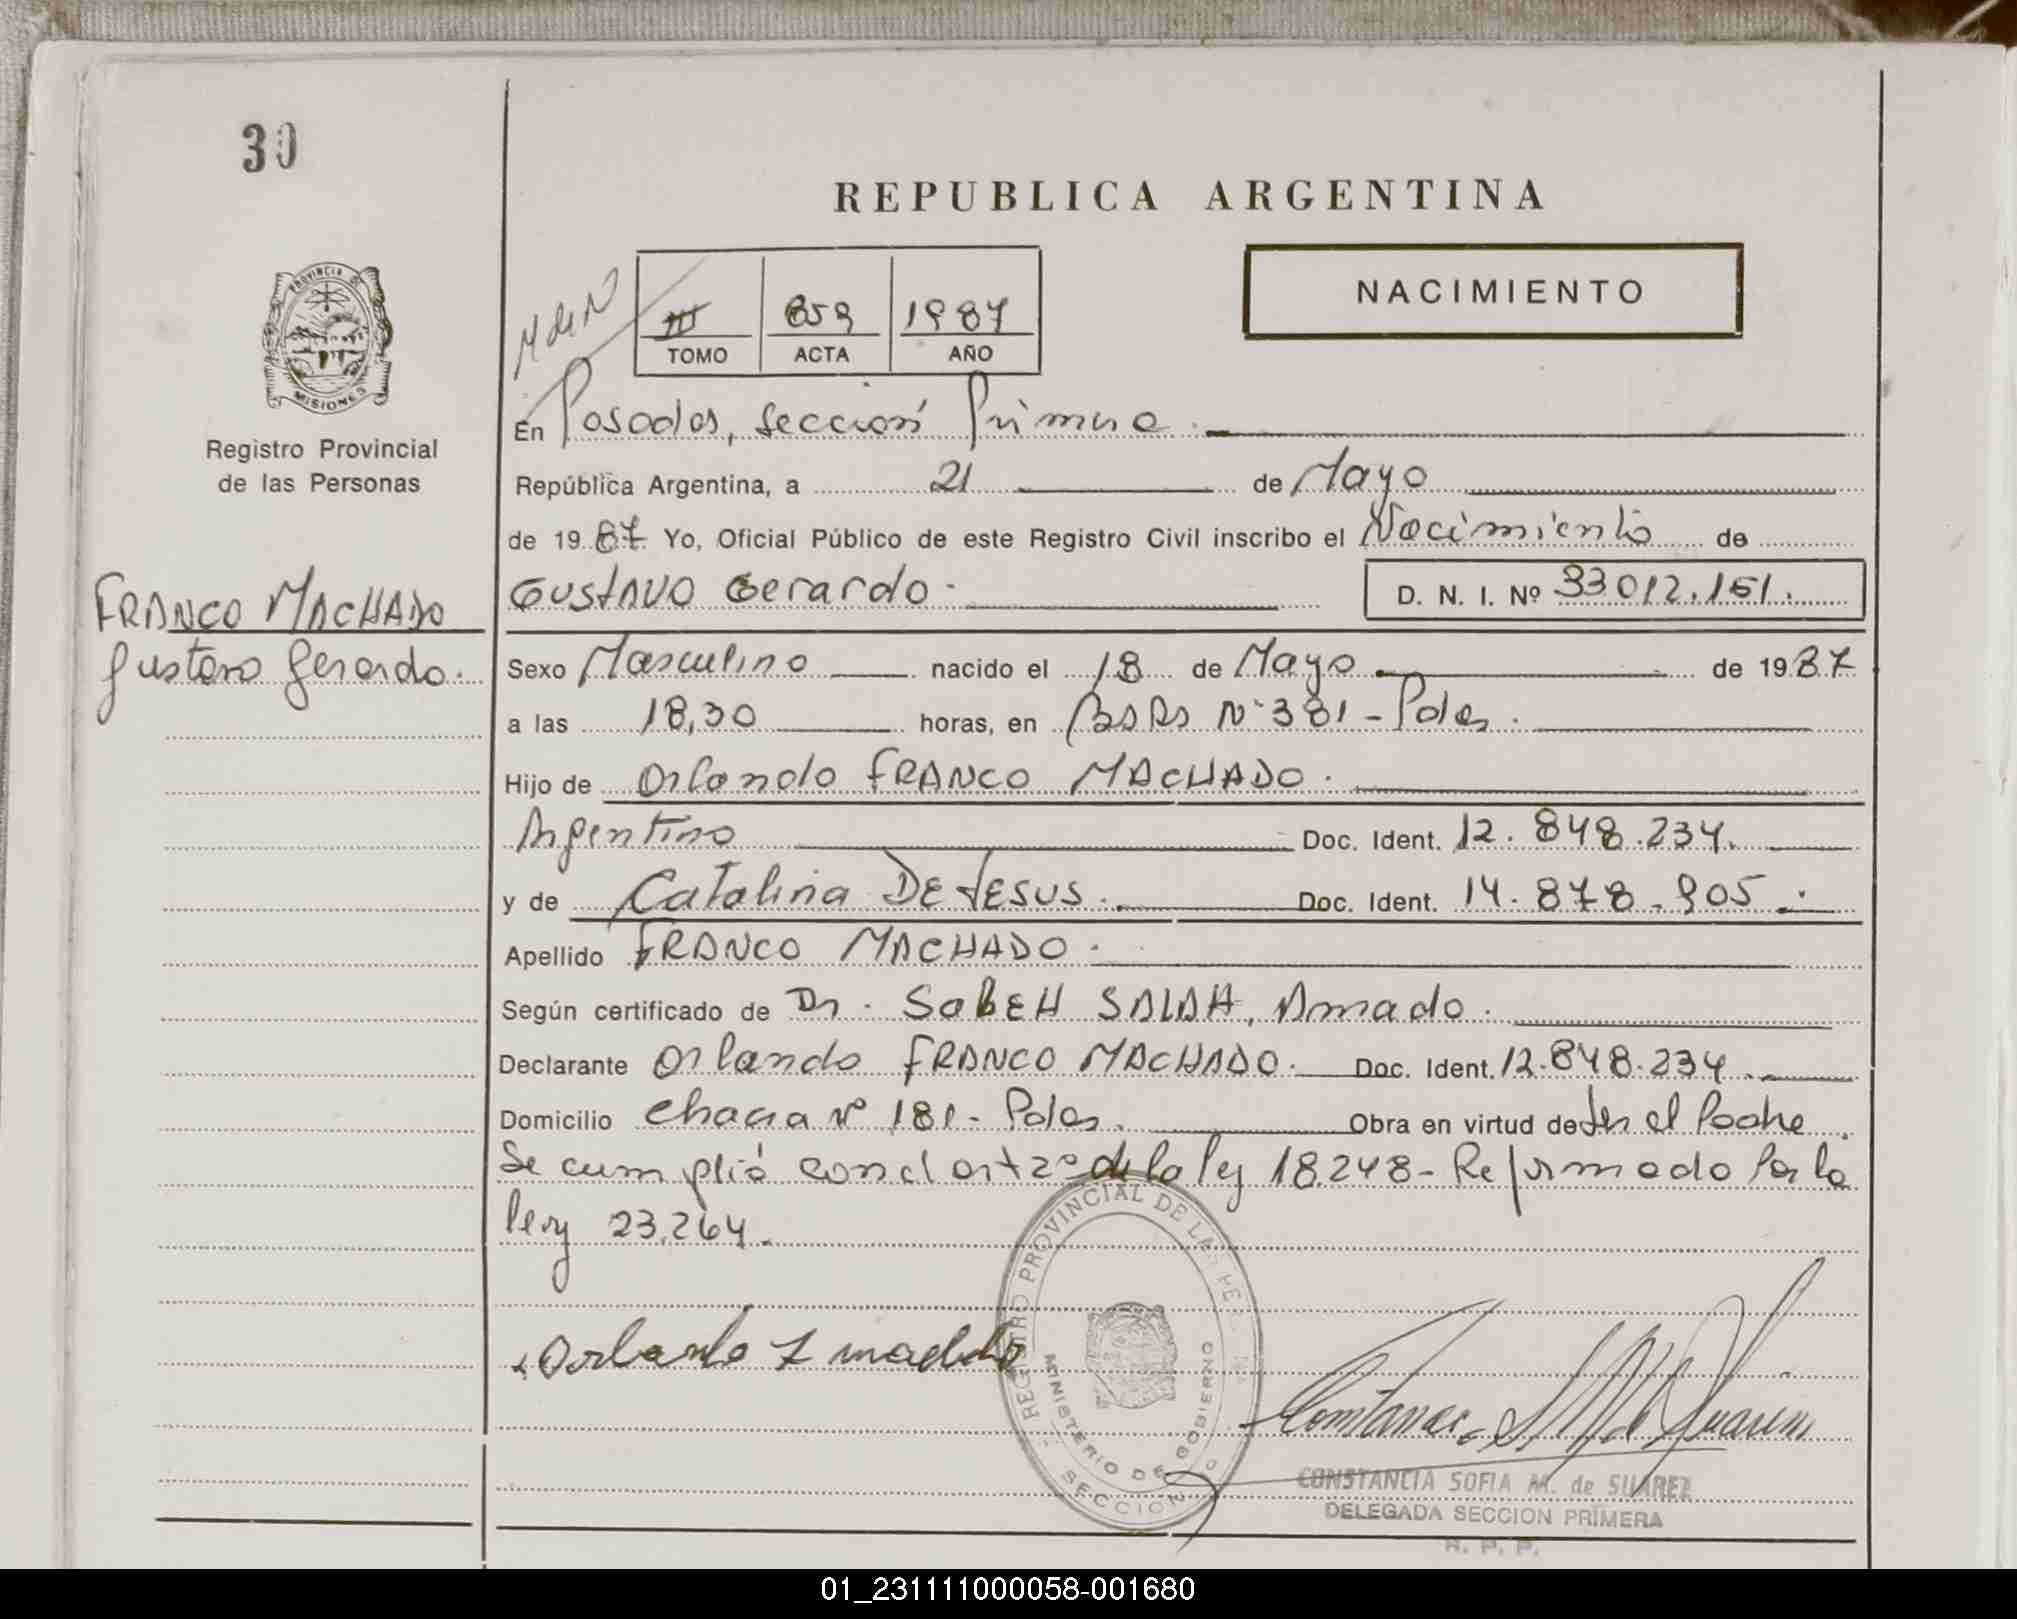 30
REPUBLICA ARGENTINA
NACIMIENTO
III 859 1987
TOMO ACTA AÑO
PROVINCIA DE
MISIONES
Registro Provincial
de las Personas
M de N
En Posadas, Sección Primera.
República Argentina, a 21 de Mayo
de 1987 Yo, Oficial Público de este Registro Civil inscribo el Nacimiento de
FRANCO MACHADO
Gustavo Gerardo.
GUSTAVO Gerardo. D. N. I. Nº 33012.161.
Sexo Masculino nacido el 18 de Mayo de 1987
a las 18,30 horas, en Bs As Nº 381 - Pdas.
Hijo de Orlando FRANCO MACHADO.
Argentino Doc. Ident. 12.848.234.
y de Catalina DE JESUS. Doc. Ident. 14.878.905.
Apellido FRANCO MACHADO.
Según certificado de Dr. SabEH SALAH, Amado.
Declarante Orlando FRANCO MACHADO. Doc. Ident. 12.848.234.
Domicilio Chacra Nº 181 - Pdas. Obra en virtud de Ser el Padre.
Se cumplió con el art 2º de la ley 18.248 - Reformado Por la
ley 23.264.
REGISTRO PROVINCIAL DE LAS
MINISTERIO DE GOBIERNO
SECCION
Orlando F machado
CONSTANCIA SOFIA M. de SUAREZ
DELEGADA SECCION PRIMERA
R. P. P.
01_231111000058-001680